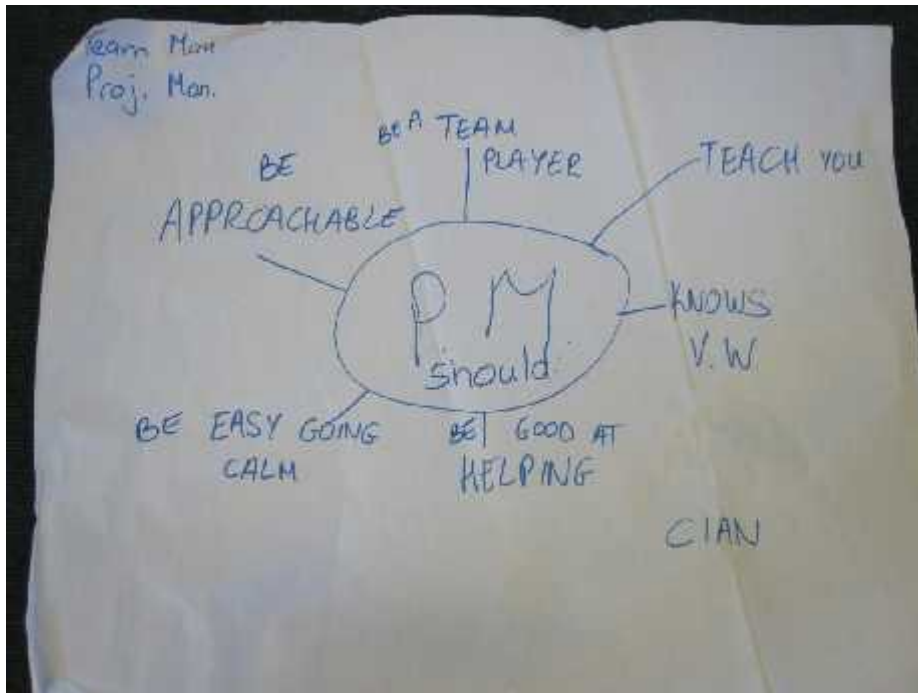 Team Man
Proj. Man.
BE A TEAM
PLAYER
TEACH YOU
BE
APPROACHABLE
PM
should
KNOWS
V.W
BE EASY GOING
CALM
BE GOOD AT
HELPING
CIAN